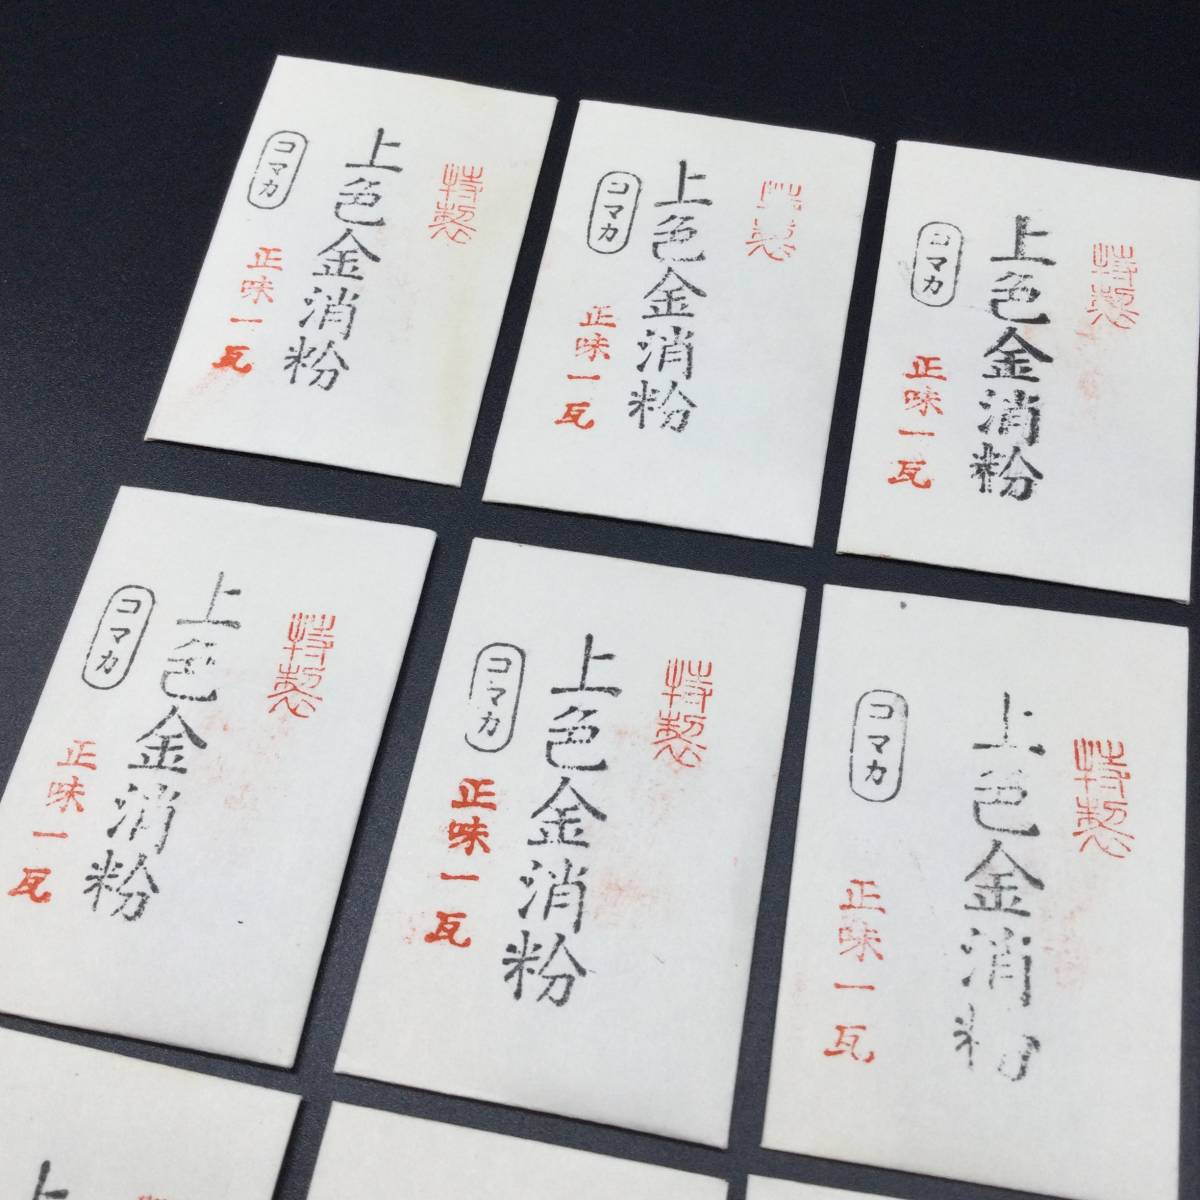 特製
上色金消粉
コマカ
正味一瓦
特製
上色金消粉
コマカ
正味一瓦
特製
上色金消粉
コマカ
正味一瓦
特製
上色金消粉
コマカ
正味一瓦
特製
上色金消粉
コマカ
正味一瓦
特製
上色金消粉
コマカ
正味一瓦
上